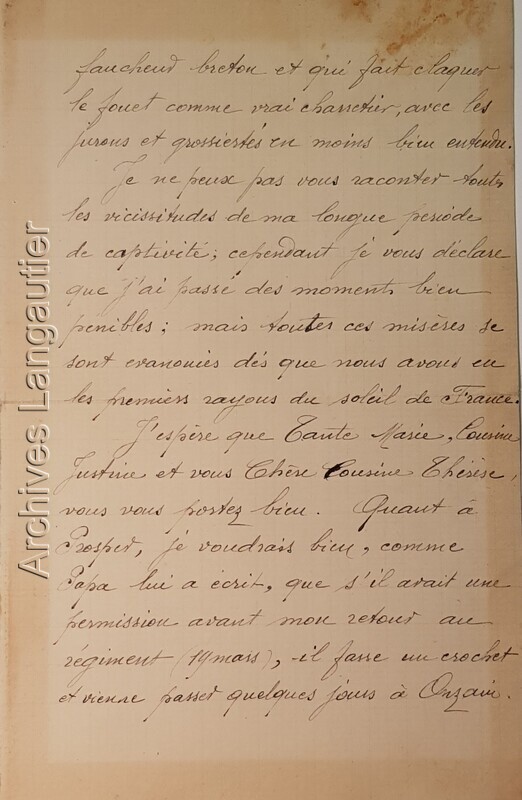 faucheur breton et qui fait claquer
le fouet comme vrai charretier, avec les
jurons et grossiertés en moins bien entendu.
Je ne peux pas vous raconter toutes
les vicissitudes de ma longue période
de captivité; cependant je vous déclare
que j'ai passé des moments bien
penibles; mais toutes ces misères se
sont evanouies dés que nous avons eu
les premiers rayons du soleil de France.
J'espère que Tante Marie, Cousine
Justine et vous Chère Cousine Thérèse,
vous vous portez bien. Quant à
Prosper, je voudrais bien, comme
Papa lui a écrit, que s'il avait une
permission avant mon retour au
régiment (19 mars), il fasse un crochet
et vienne passer quelques jours à Onzain.
Archives Langautier